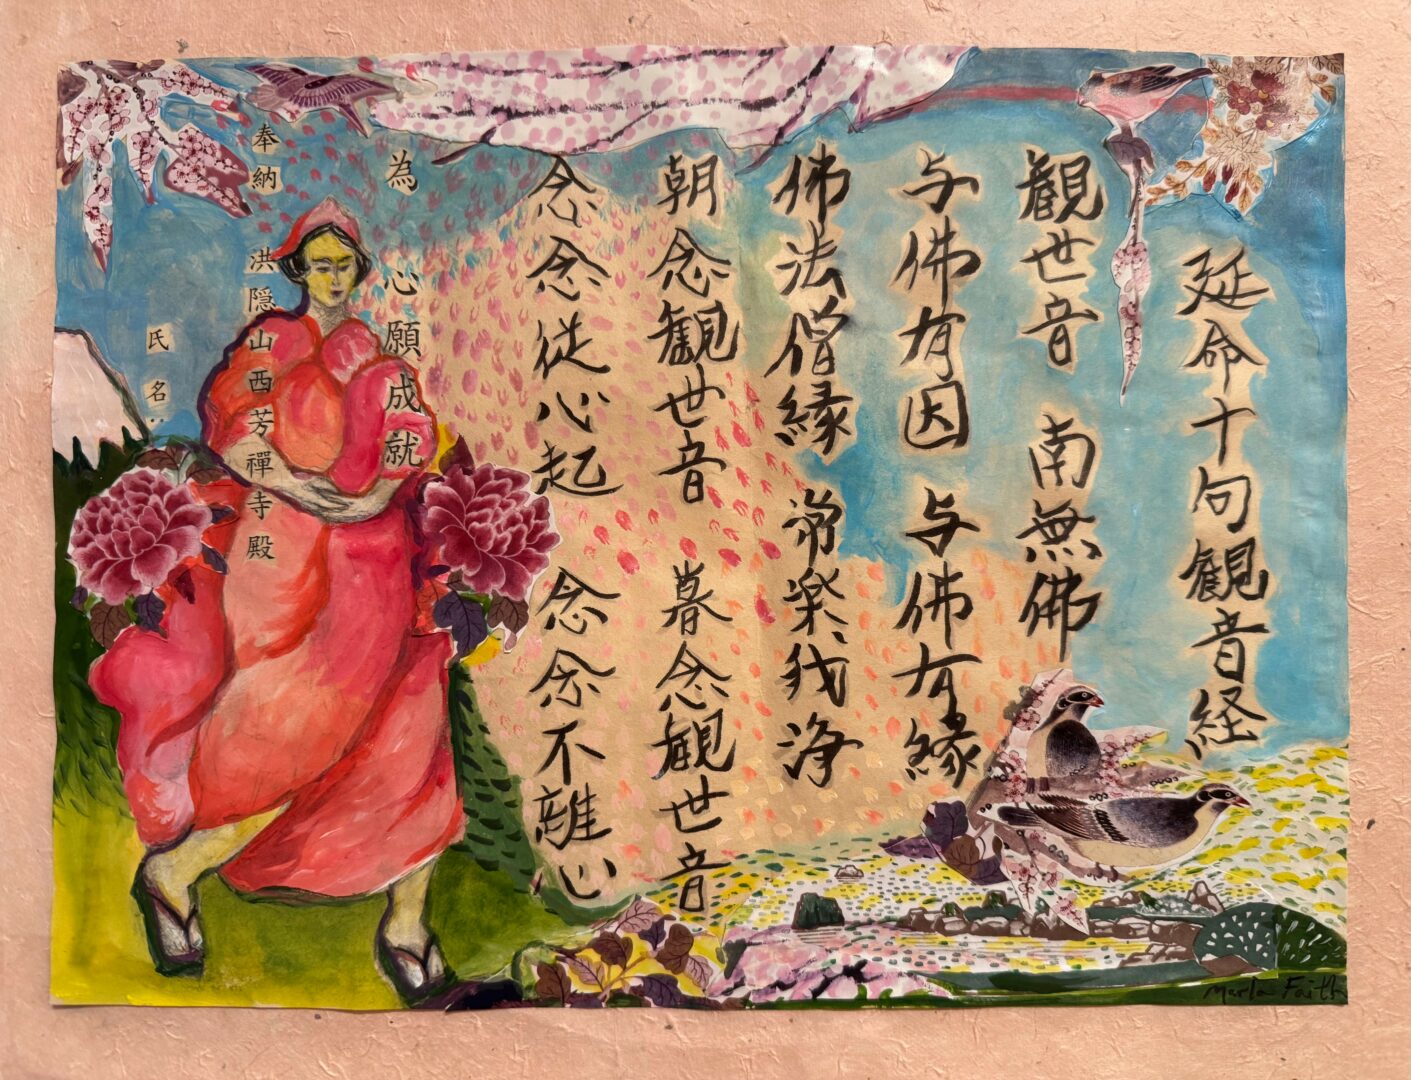 延命十句観音経
観世音　南無佛
与佛有因　与佛有縁
佛法僧縁　常楽我浄
朝念観世音　暮念観世音
念念従心起　念念不離心
為　心願成就
奉納　洪隠山西芳禪寺殿
氏名：
Marla Faith